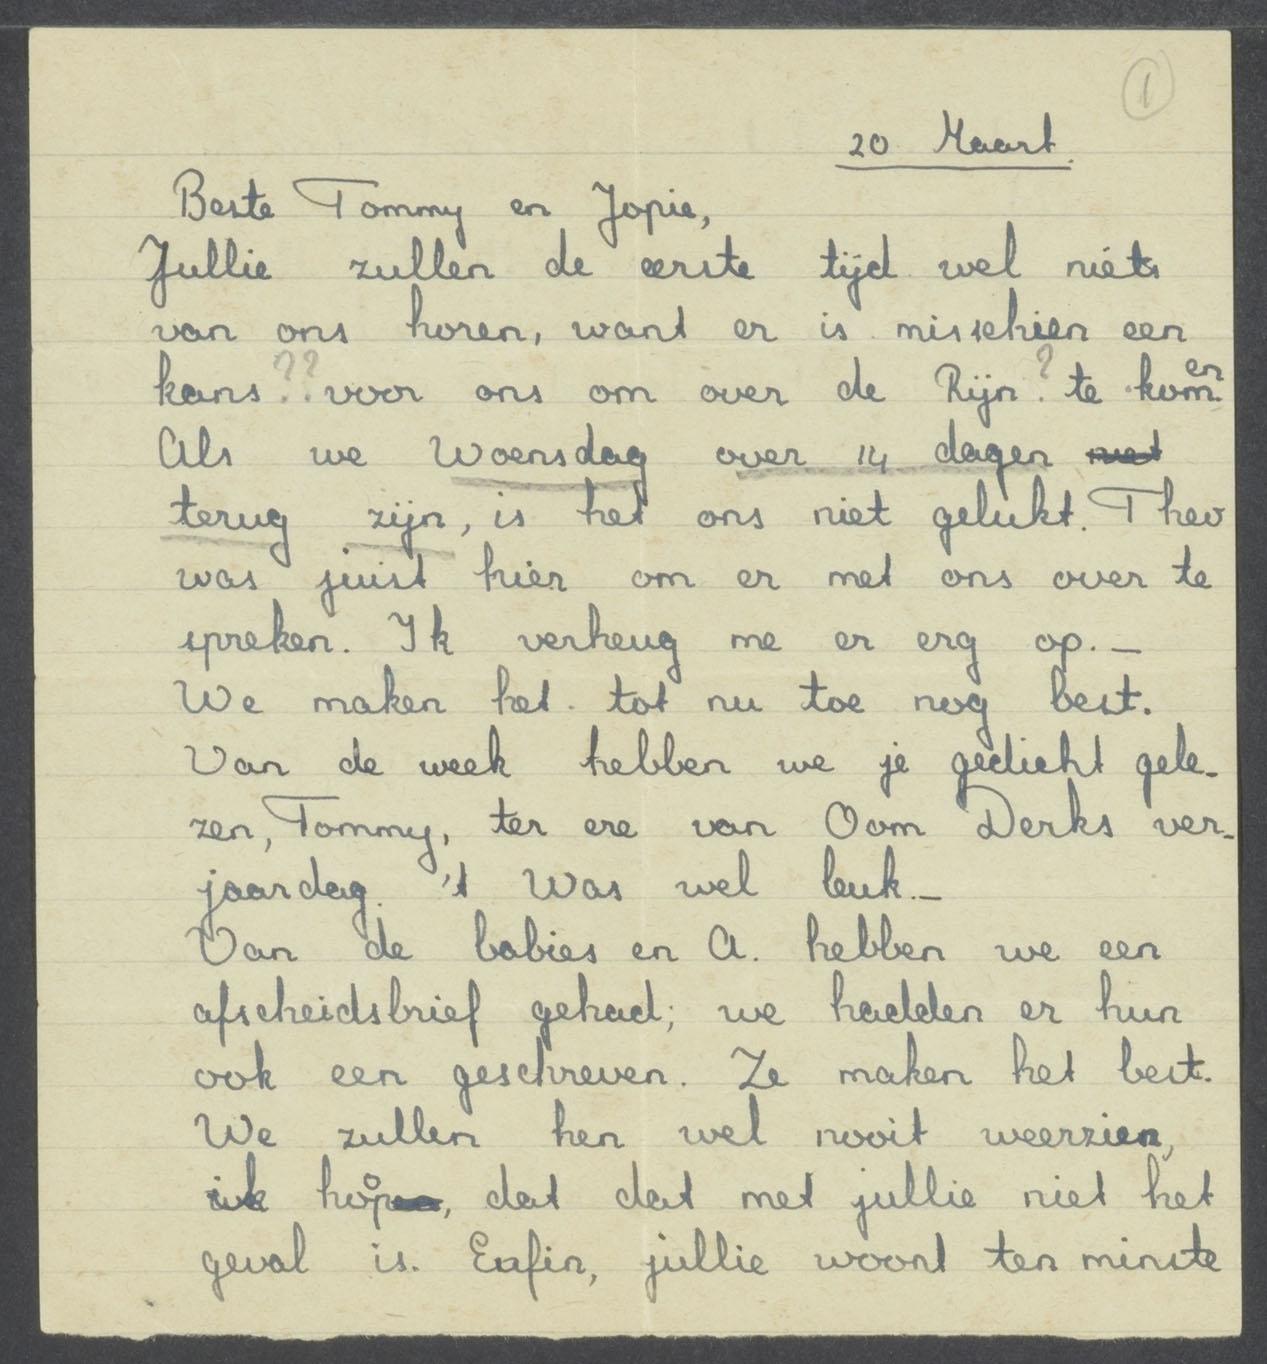 1
20 Maart.
Beste Tommy en Jopie,
Jullie zullen de eerste tijd wel niets
van ons horen, want er is misschien een
kans ?? voor ons om over de Rijn ? te komen
Als we Woensdag over 14 dagen niet
terug zijn, is het ons niet gelukt. Theo
was juist hier om er met ons over te
spreken. Ik verheug me er erg op. –
We maken het tot nu toe nog best.
Van de week hebben we je gedicht gele-
zen, Tommy, ter ere van Oom Derks ver-
jaardag. 't Was wel leuk. –
Van de babies en A. hebben we een
afscheidsbrief gehad; we hadden er hun
ook een geschreven. Ze maken het best.
We zullen hen wel nooit weerzien,
ik hoop, dat dat met jullie niet het
geval is. Enfin, jullie woont ten minste